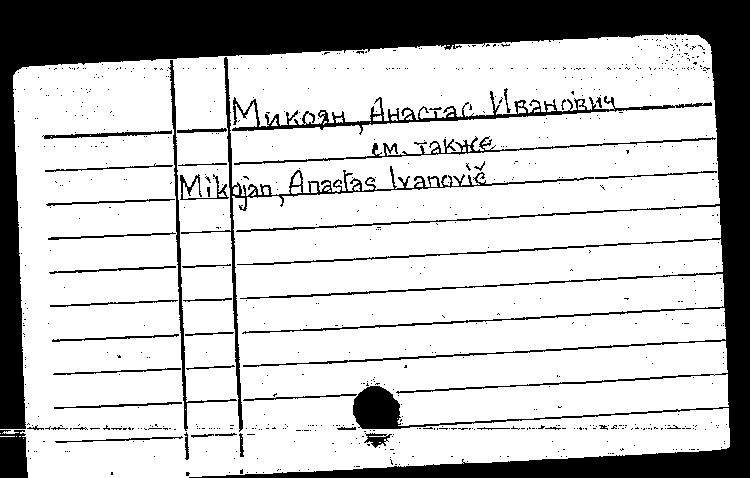 Микоян, Анастас Иванович
см. также
Mikojan, Anastas Ivanovič